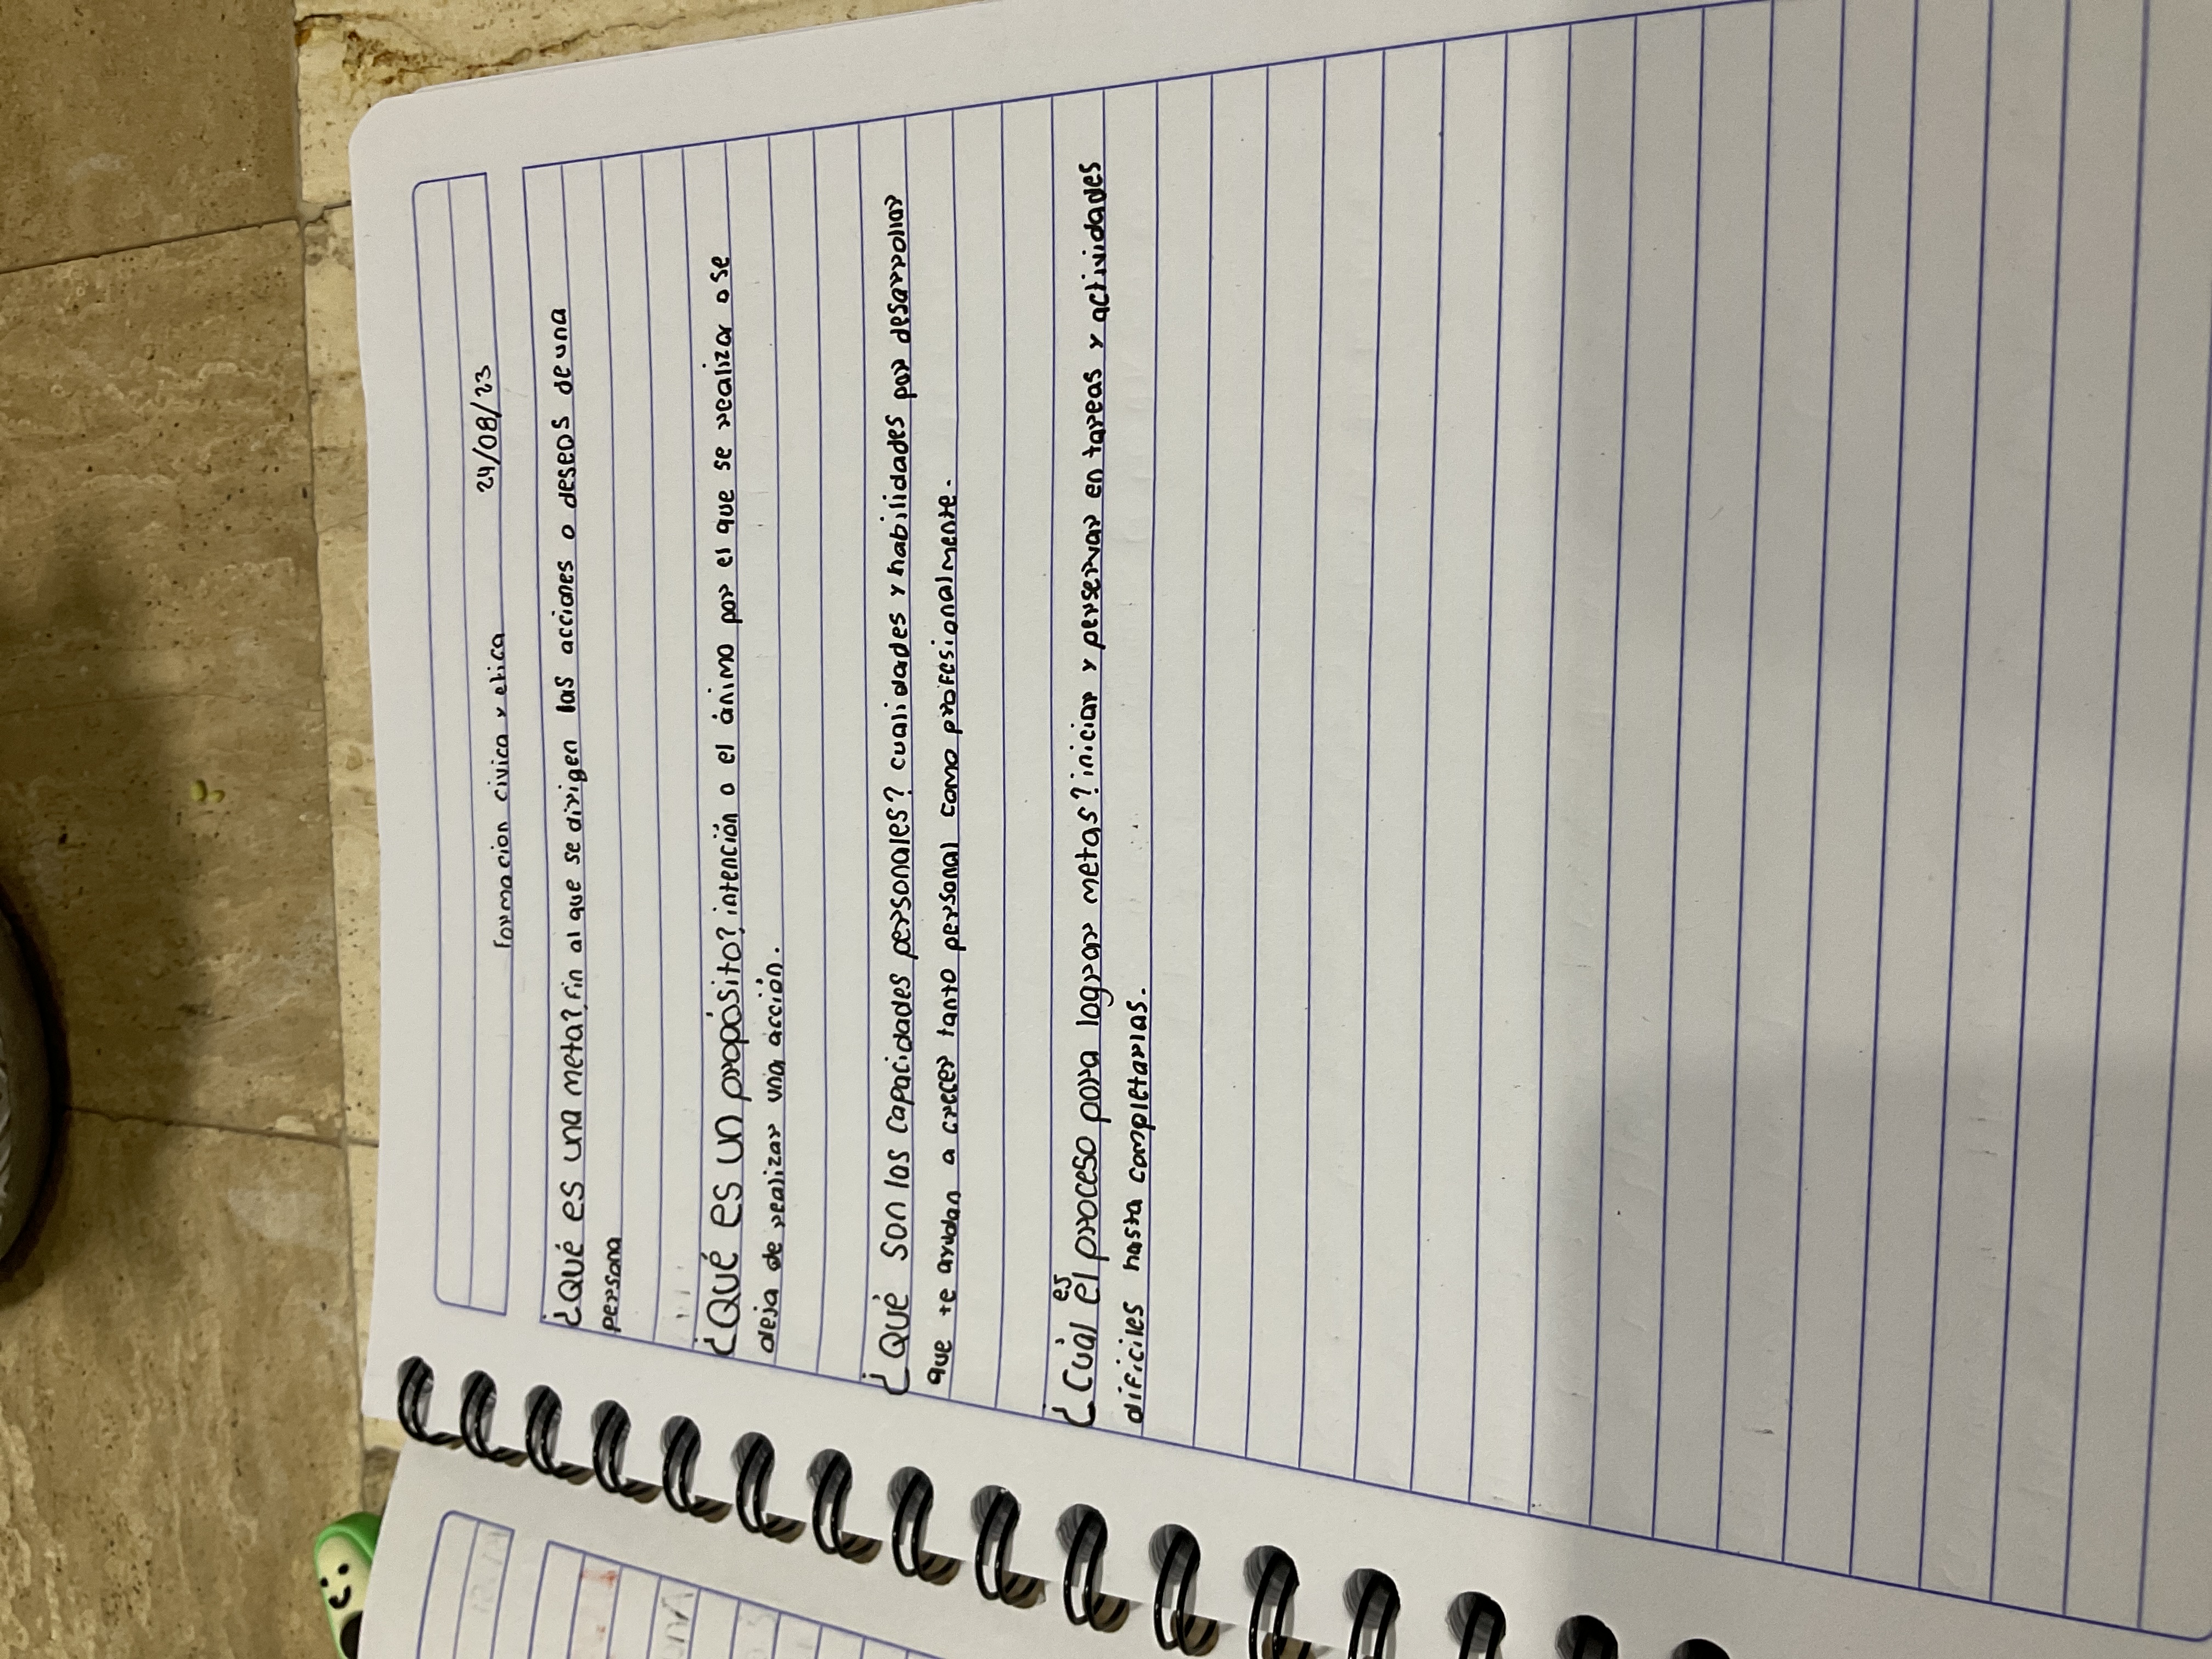 Formacion civica y etica 24/08/23
¿Qué es una meta? Fin al que se dirigen las acciones o deseos de una
persona
¿Qué es un propósito? intención o el ánimo por el que se realizar o se
deja de realizar una acción.
¿Qué son las capacidades personales? cualidades y habilidades por desarrollar
que te ayudan a crecer tanto personal como profesionalmente.
¿Cuál es el proceso para lograr metas? iniciar y perservar en tareas y actividades
dificiles hasta completarlas.